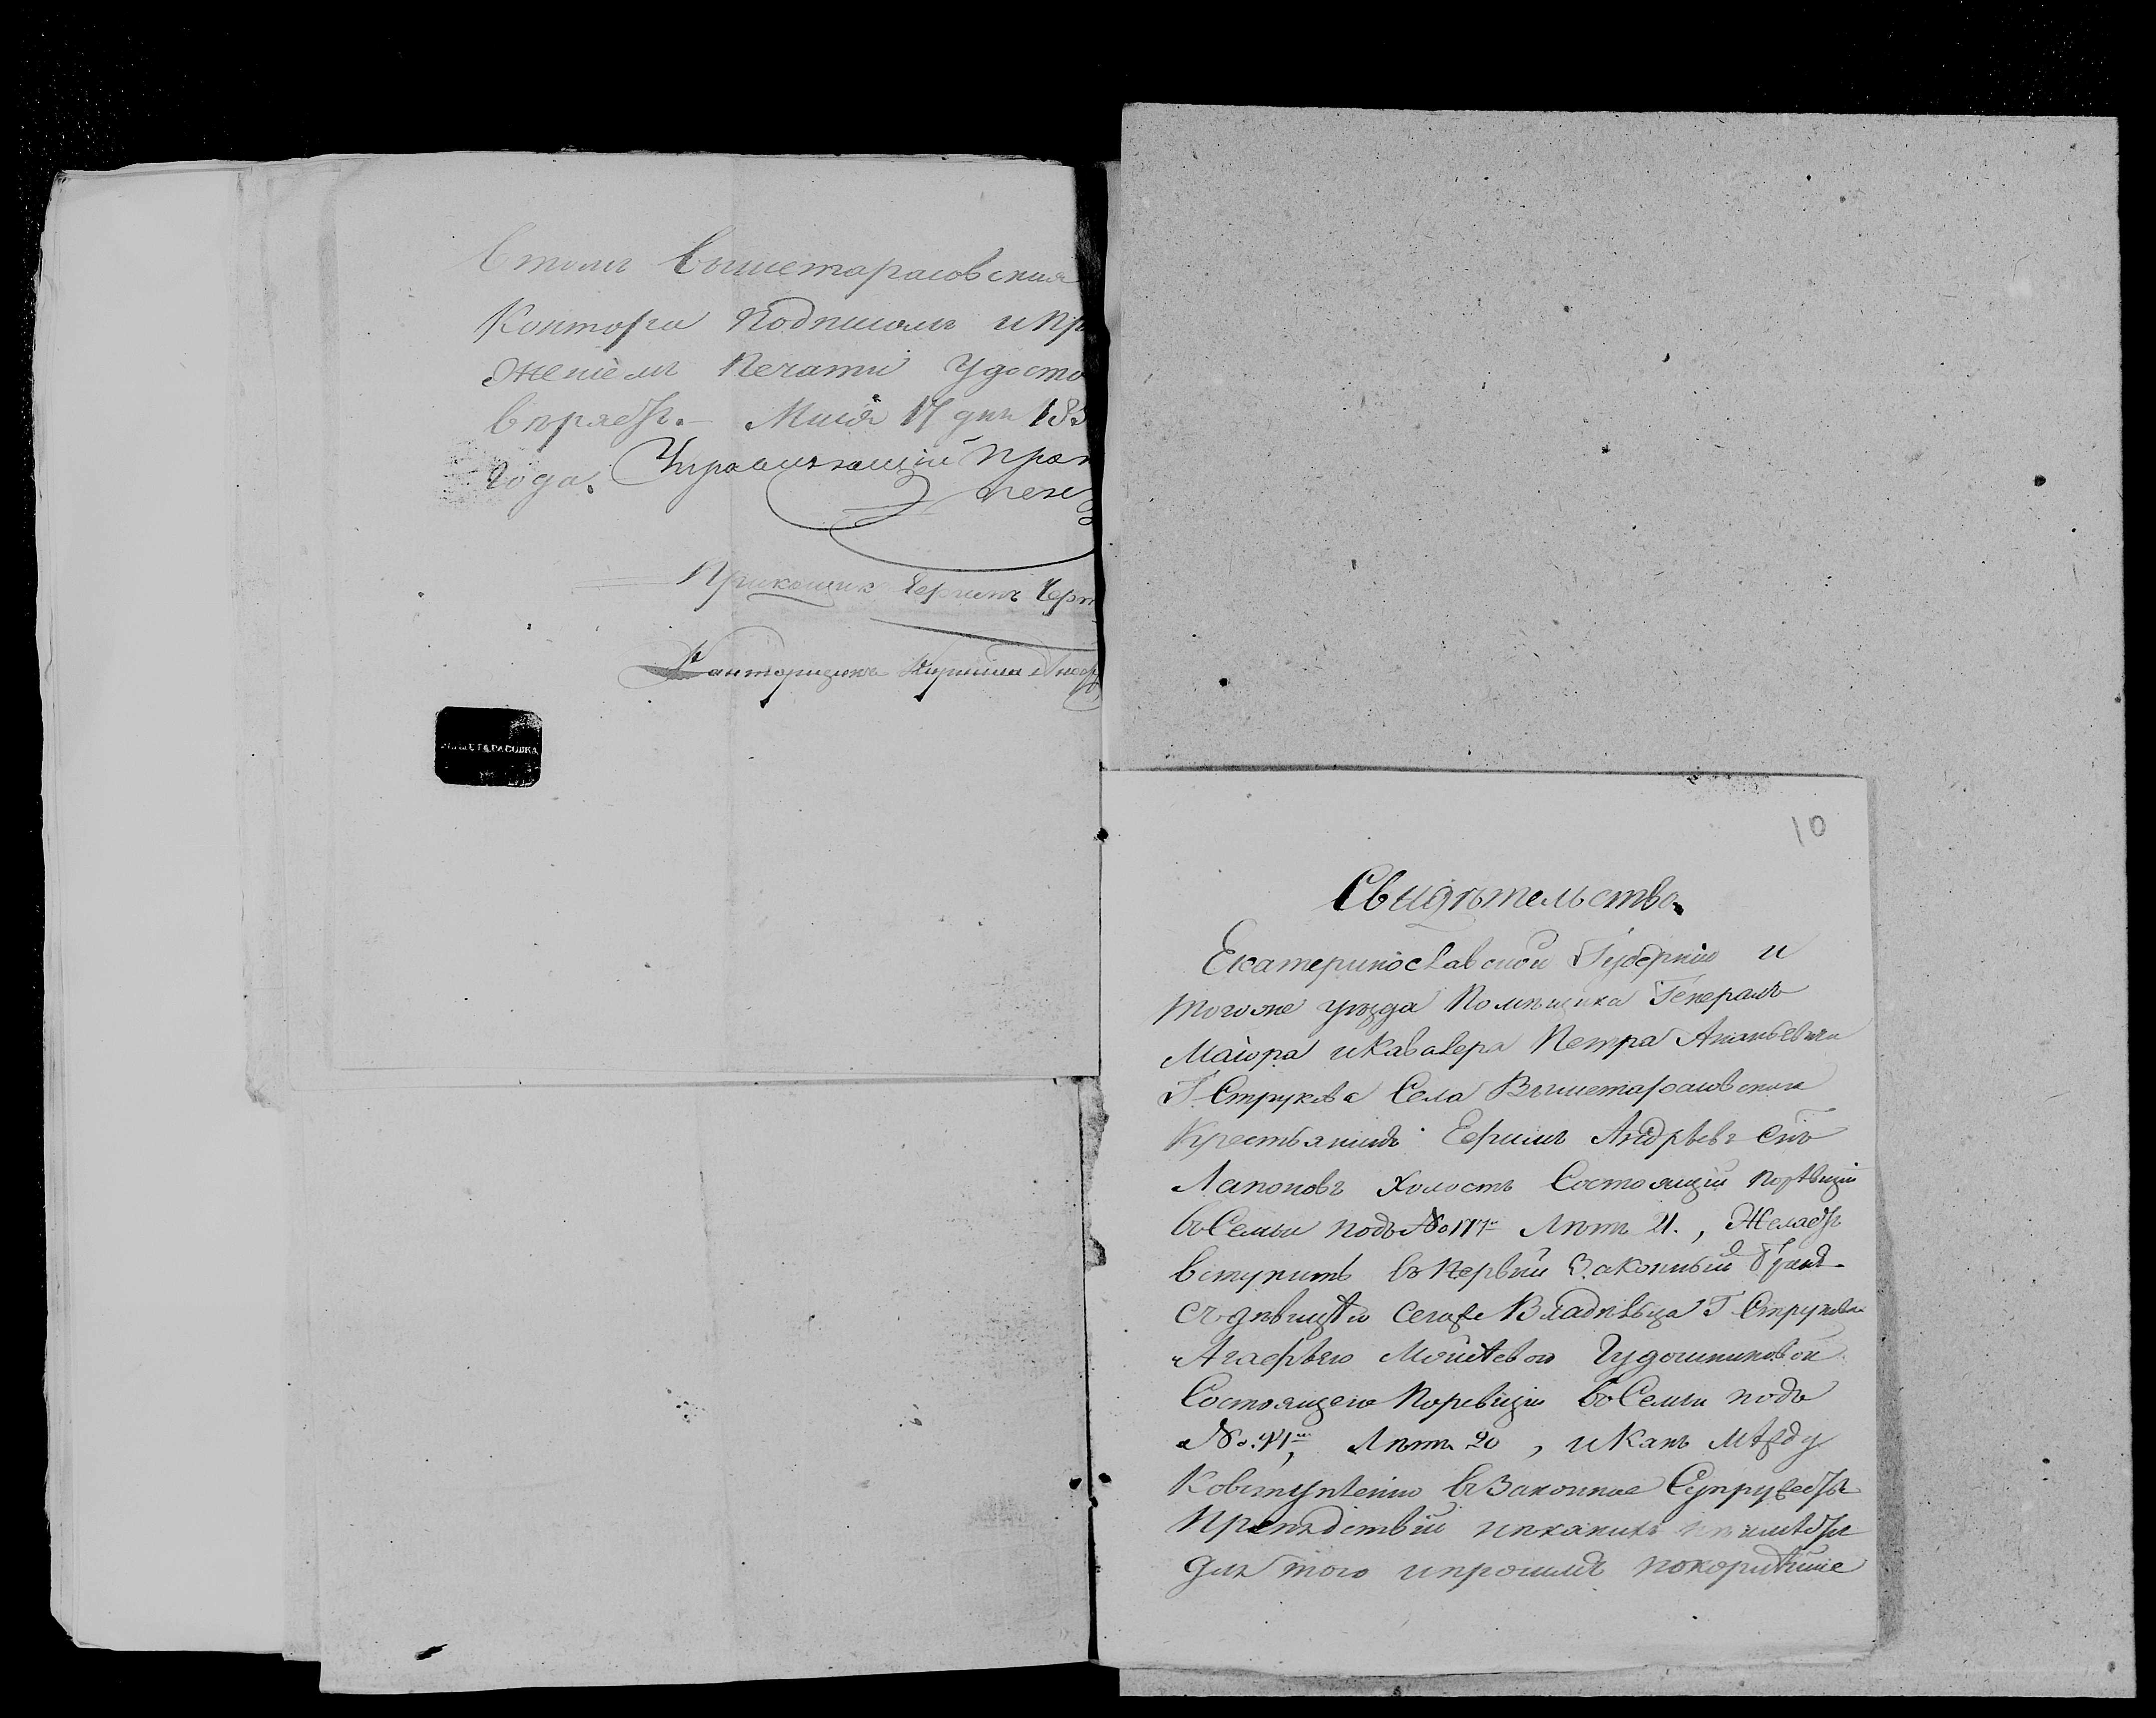 Втомъ Вышетарасовская
Контора Подписомъ ипри
жениемъ Печати Удосто
вѣряетъ. Маия 17 дня 183
Года. Управляющий
Прикащик
Канторщикъ Кирила
ВЫШЕТАРАСОВКА
10
Свидѣтельство.
Екатеринославской Губернии и
тогоже уѣзда Помѣщика Генералъ
Маиора иКавалера Петра Ананьевича
Г. Струкова Села Вышетарасовскаго
Крестьянинъ Ефимъ Андрѣевъ Снъ
Лапоновъ Холостъ Состоящий Порѣвизии
воСемьи подъ №117м Лѣтъ 21., Желаетъ
вступить въПервый Законный бракъ
съдѣвицею Сегоже Владѣльца Г. Струкова
Агафѣею Моисѣевою Гудошниковой
Состоящею Поревизии воСемьи подъ
№. 41м, Лѣтъ 20, иКакъ Между
Ковступлению ВЗаконное Супружество
Препядствий никакихъ неимѣетъ
для того ипросимъ покорнѣйше